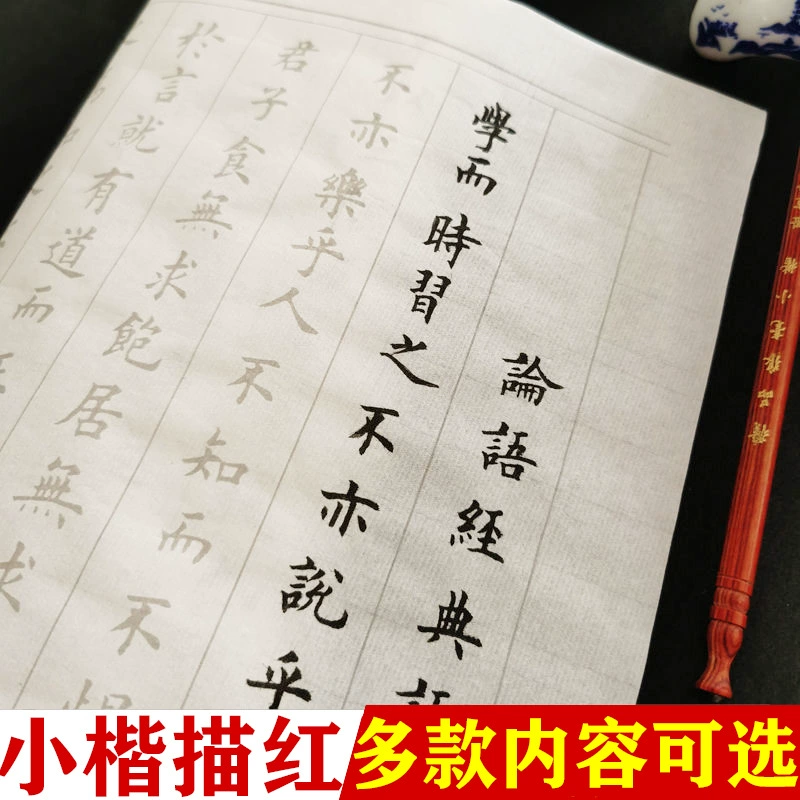 論語經典語
學而時習之不亦說乎
不亦樂乎人不知而不愠
君子食無求飽居無求
於言就有道而正
小楷描红
多款内容可选